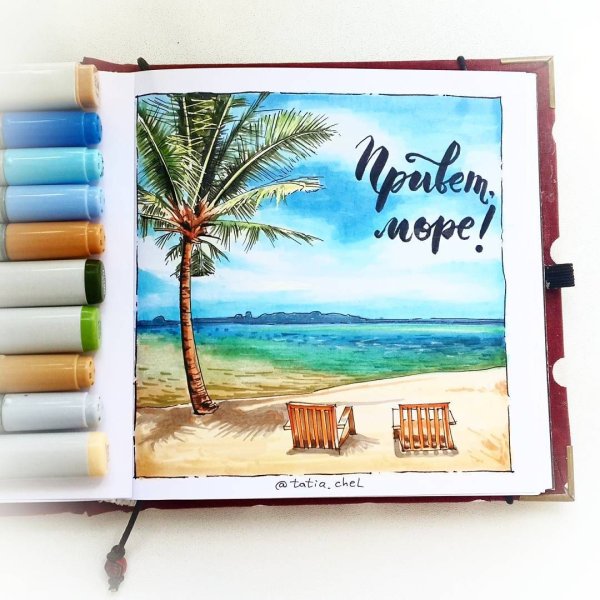 Привет,
море!
@tatia_chel